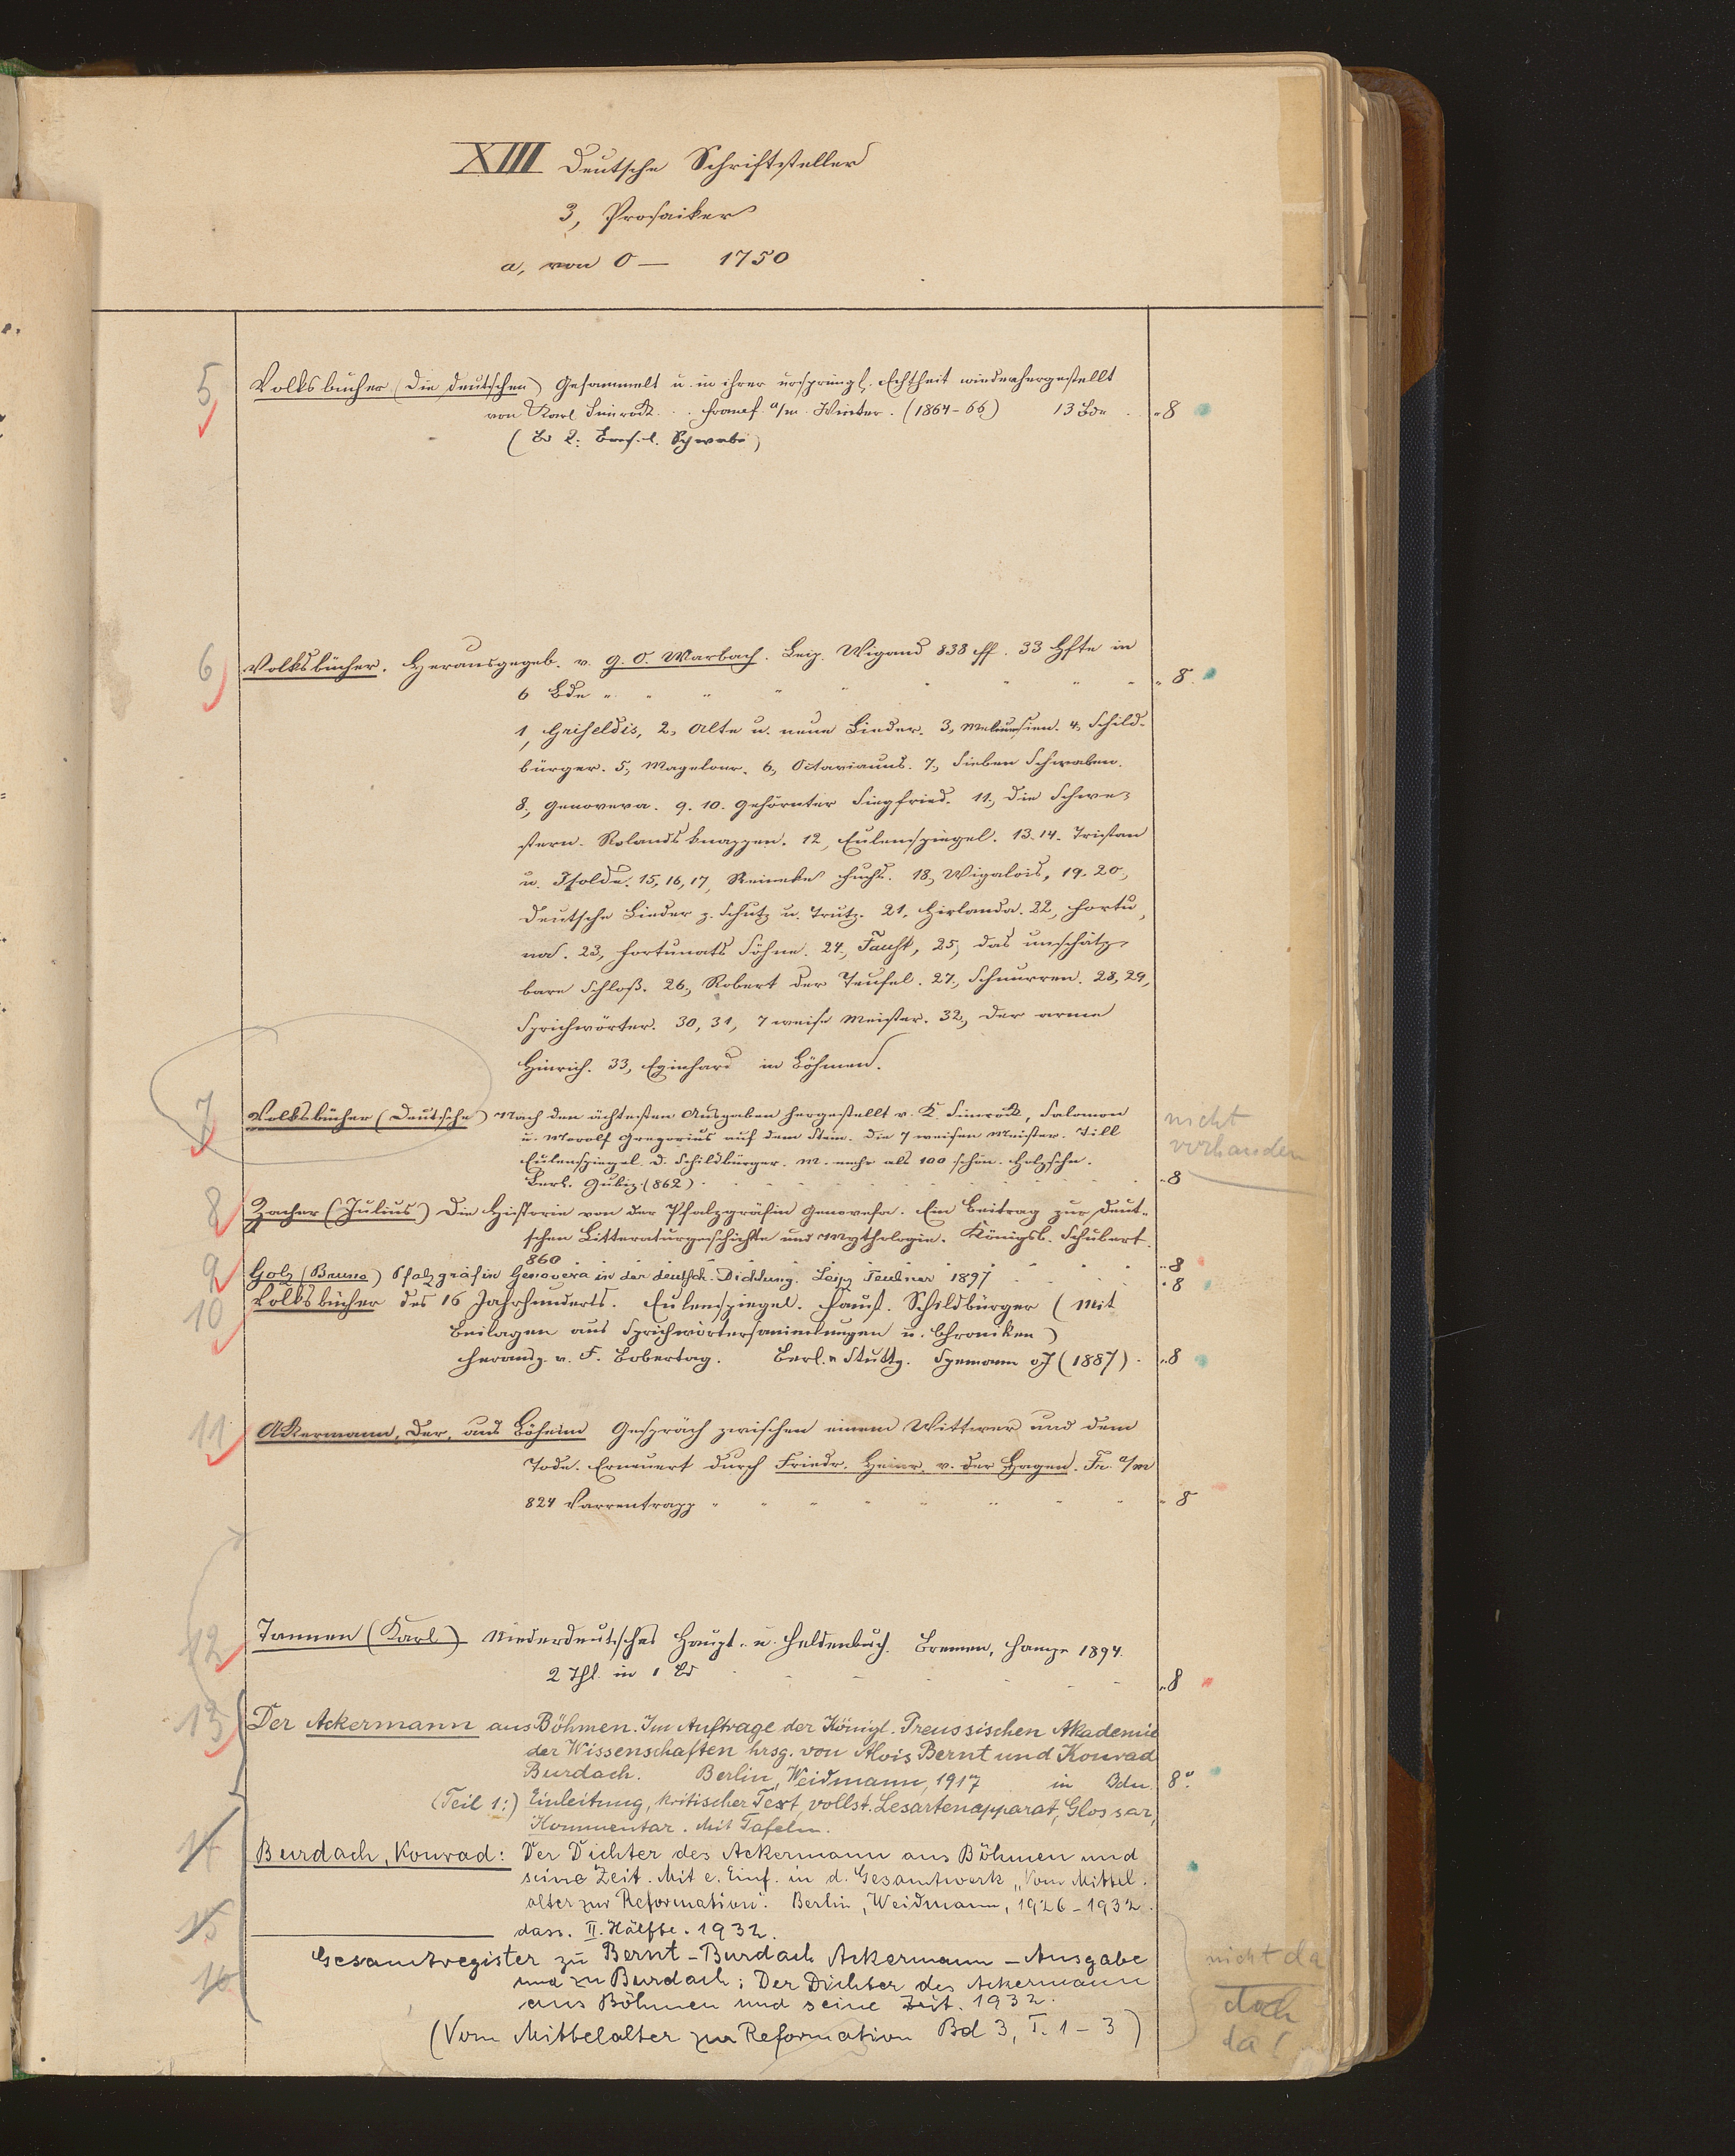 XIII Deutsche Schriftsteller
3, Prosaiker
a, von 0 — 1750
5 Volksbücher (Die deutschen) Gesammelt u. in ihrer ursprüngl. Echtheit wiederhergestellt
von Karl Simrock . . . Francf. a/m. Winter. (1864-66) 13 Bde . „ 8
(Bd 2: Basel. Schwabe)
6 Volksbücher. Herausgegeb. v. G. O. Marbach. Leip. Wigand 838 ff. 33 Hfte in
6 Bde „ 8.
1, Griseldis, 2, Alte u. neue Lieder. 3, Melusina. 4, Schild-
bürger. 5, Magelone. 6, Octavianus. 7, Sieben Schwaben.
8, Genoveva. 9. 10. Gehörnter Siegfried. 11, Die Schwe-
stern. Rolands knappen. 12, Eulenspiegel. 13. 14. Tristan
u. Isolde. 15, 16, 17, Reineke Fuchs. 18, Wigalois, 19. 20,
Deutsche Lieder z. Schutz u. Trutz. 21, Hirlanda. 22, Fortu-
nat. 23, Fortunats Söhne. 24, Faust, 25, das unschätz-
bare Schloß. 26, Robert der Teufel. 27, Schnurren. 28, 29,
Sprichwörter. 30, 31, 7 weise Meister. 32, Der arme
Hinrich. 33, Eginhard in Böhmen.
7 Volksbücher (Deutsche) Nach den ächtesten Ausgaben hergestellt v. K. Simrock, Salomon
u. Morolf Gregorius auf dem Stein. Die 7 weisen Meister. Till
Eulenspiegel. D. Schildbürger. M. mehr als 100 schön. Holzschn.
Berl. Gubiz. (862) . „ 8
nicht
vorhanden
8 Zacher (Julius) Die Historie von der Pfalzgräfin Genovefa. Ein Beitrag zur deut-
schen Litteraturgeschichte und Mythologie. Königsb. Schubert.
860 „ 8
9 Golz (Bruno) Pfalzgräfin Genoveva in der deutsch. Dichtung. Leipz Teubner 1897 „ 8
10 Volksbücher des 16 Jahrhunderts. Eulenspiegel. Faust. Schildbürger (Mit
Beilagen aus Sprichwörtersammlungen u. Chroniken)
herausg. v. F. Bobertag. Berl. u Stuttg. Spemann oJ (1887) . „ 8
11 Ackermann, Der, aus Böheim Gespräch zwischen einem Wittwer und dem
Tode. Erneuert durch Friedr. Heinr. v. der Hagen. Fr. a/m
824 Varrentrapp „ 8
12 Tannen (Karl) Niederdeutsches Haupt- u. Heldenbuch. Bremen, Hampe 1894.
2 Thl. in 1 Bd „ 8
13 Der Ackermann aus Böhmen. Im Auftrage der Königl. Preussischen Akademie
der Wissenschaften hrsg. von Alois Bernt und Konrad
Burdach. Berlin, Weidmann, 1917 in Bdn. 8°.
(Teil 1:) Einleitung, kritischer Text, vollst. Lesartenapparat, Glossar,
Kommentar. Mit Tafeln.
14 Burdach, Konrad: Der Dichter des Ackermann aus Böhmen und
seine Zeit. Mit e. Einf. in d. Gesamtwerk „Vom Mittel-
alter zur Reformation". Berlin, Weidmann, 1926 - 1932.
15 dass. II. Hälfte. 1932.
16 Gesamtregister zu Bernt-Burdach Ackermann-Ausgabe
und zu Burdach: Der Dichter des Ackermann
aus Böhmen und seine Zeit. 1932.
(Vom Mittelalter zur Reformation Bd 3, T. 1 - 3)
nicht da
doch
da!